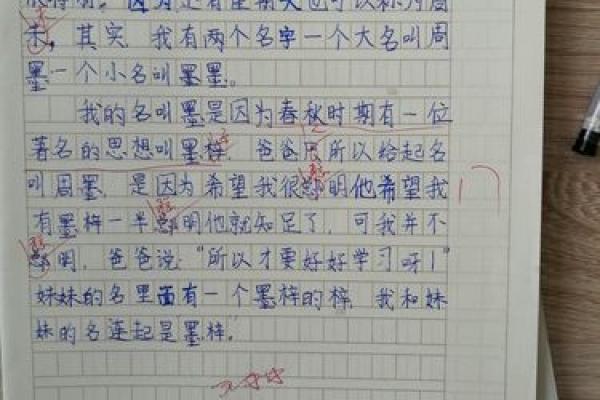 因为是有星期天也可以称为周
末，其实，我有两个名字一个大名叫周
墨一个小名叫墨墨。
我的名叫墨是因为春秋时期有一位
著名的思想叫墨梓，爸爸所以给起名
叫周墨，是因为希望我很聪明他希望我
有墨梓一半聪明他就知足了，可我并不
聪明，爸爸说：“所以才要好好学习呀！”
妹妹的名里面有一个墨梓的梓，我和妹
妹的名连起是墨梓。